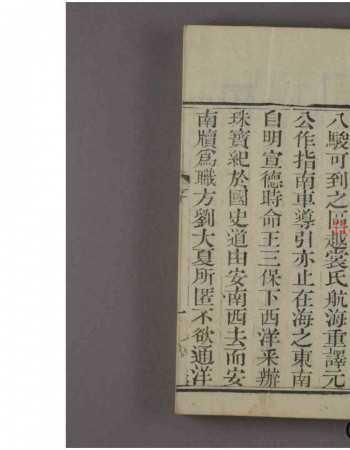 八駿可到之區越裳氏航海重譯元
公作指南車導引亦止在海之東南
自明宣德時命王三保下西洋采辦
珠寶紀於國史道由安南西去而安
南牘爲職方劉大夏所匿不欲通洋